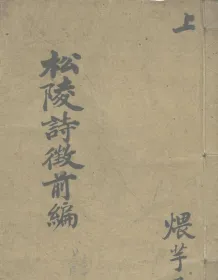 上
松陵詩徵前編
煨芋